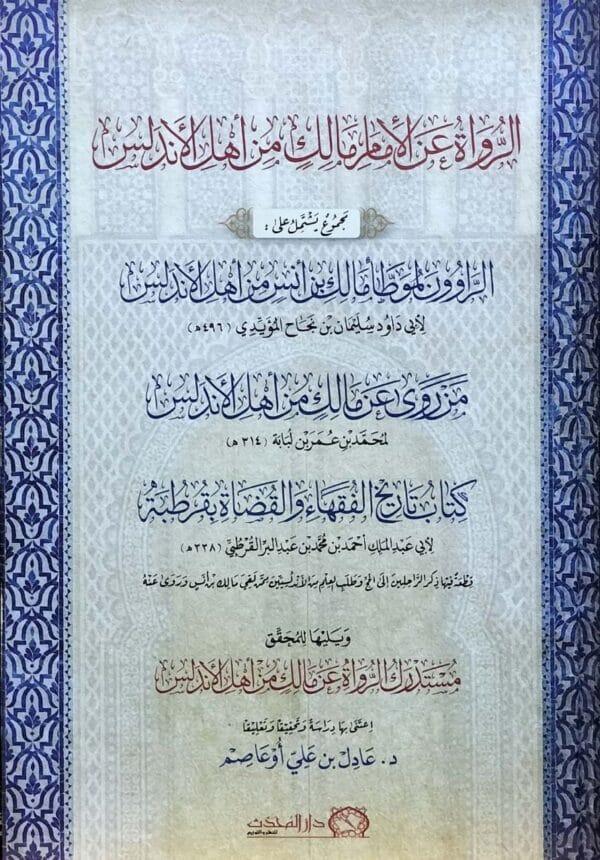 الرُّوَاةُ عَنِ الإِمَامِ مَالِكٍ مِنْ أَهْلِ الأَنْدَلُسِ
مَجْمُوعٌ يَشْتَمِلُ عَلَى :
الرَّاوُونَ لِمُوَطَّأِ مَالِكِ بْنِ أَنَسٍ مِنْ أَهْلِ الأَنْدَلُسِ
لِأَبِي دَاوُد سُلَيْمَان بْنِ نَجَاح المُؤَيَّدِي (٤٩٦ هـ)
مَنْ رَوَى عَنْ مَالِكٍ مِنْ أَهْلِ الأَنْدَلُسِ
لمُحَمَّدِ بْنِ عُمَرَ بْنِ لُبَابَة (٣١٤ هـ)
كِتَابُ تَارِيخِ الفُقَهَاءِ وَالقُضَاةِ بِقُرْطُبَةَ
لِأَبِي عَبْدِ المَلِكِ أَحْمَد بْنِ مُحَمَّد بْنِ عَبْدِ البَرِّ القُرْطُبِيِّ (٣٣٨ هـ)
قِطْعَةٌ فِيهَا ذِكْرُ الرَّاحِلِينَ إِلَى الحَجِّ وَطَلَبِ العِلْمِ مِنَ الأَنْدَلُسِيِّينَ مِمَّنْ لَقِيَ مَالِكَ بْنَ أَنَسٍ وَرَوَى عَنْهُ
وَيَلِيهَا لِلْمُحَقِّقِ
مُسْتَدْرَكُ الرُّوَاةِ عَنْ مَالِكٍ مِنْ أَهْلِ الأَنْدَلُسِ
اِعْتَنَى بِهَا دِرَاسَةً وَتَحْقِيقًا وَتَعْلِيقًا
د. عَادِل بْنِ عَلِيّ أُوعَاصِم
دار المحدث
للنشر والتوزيع